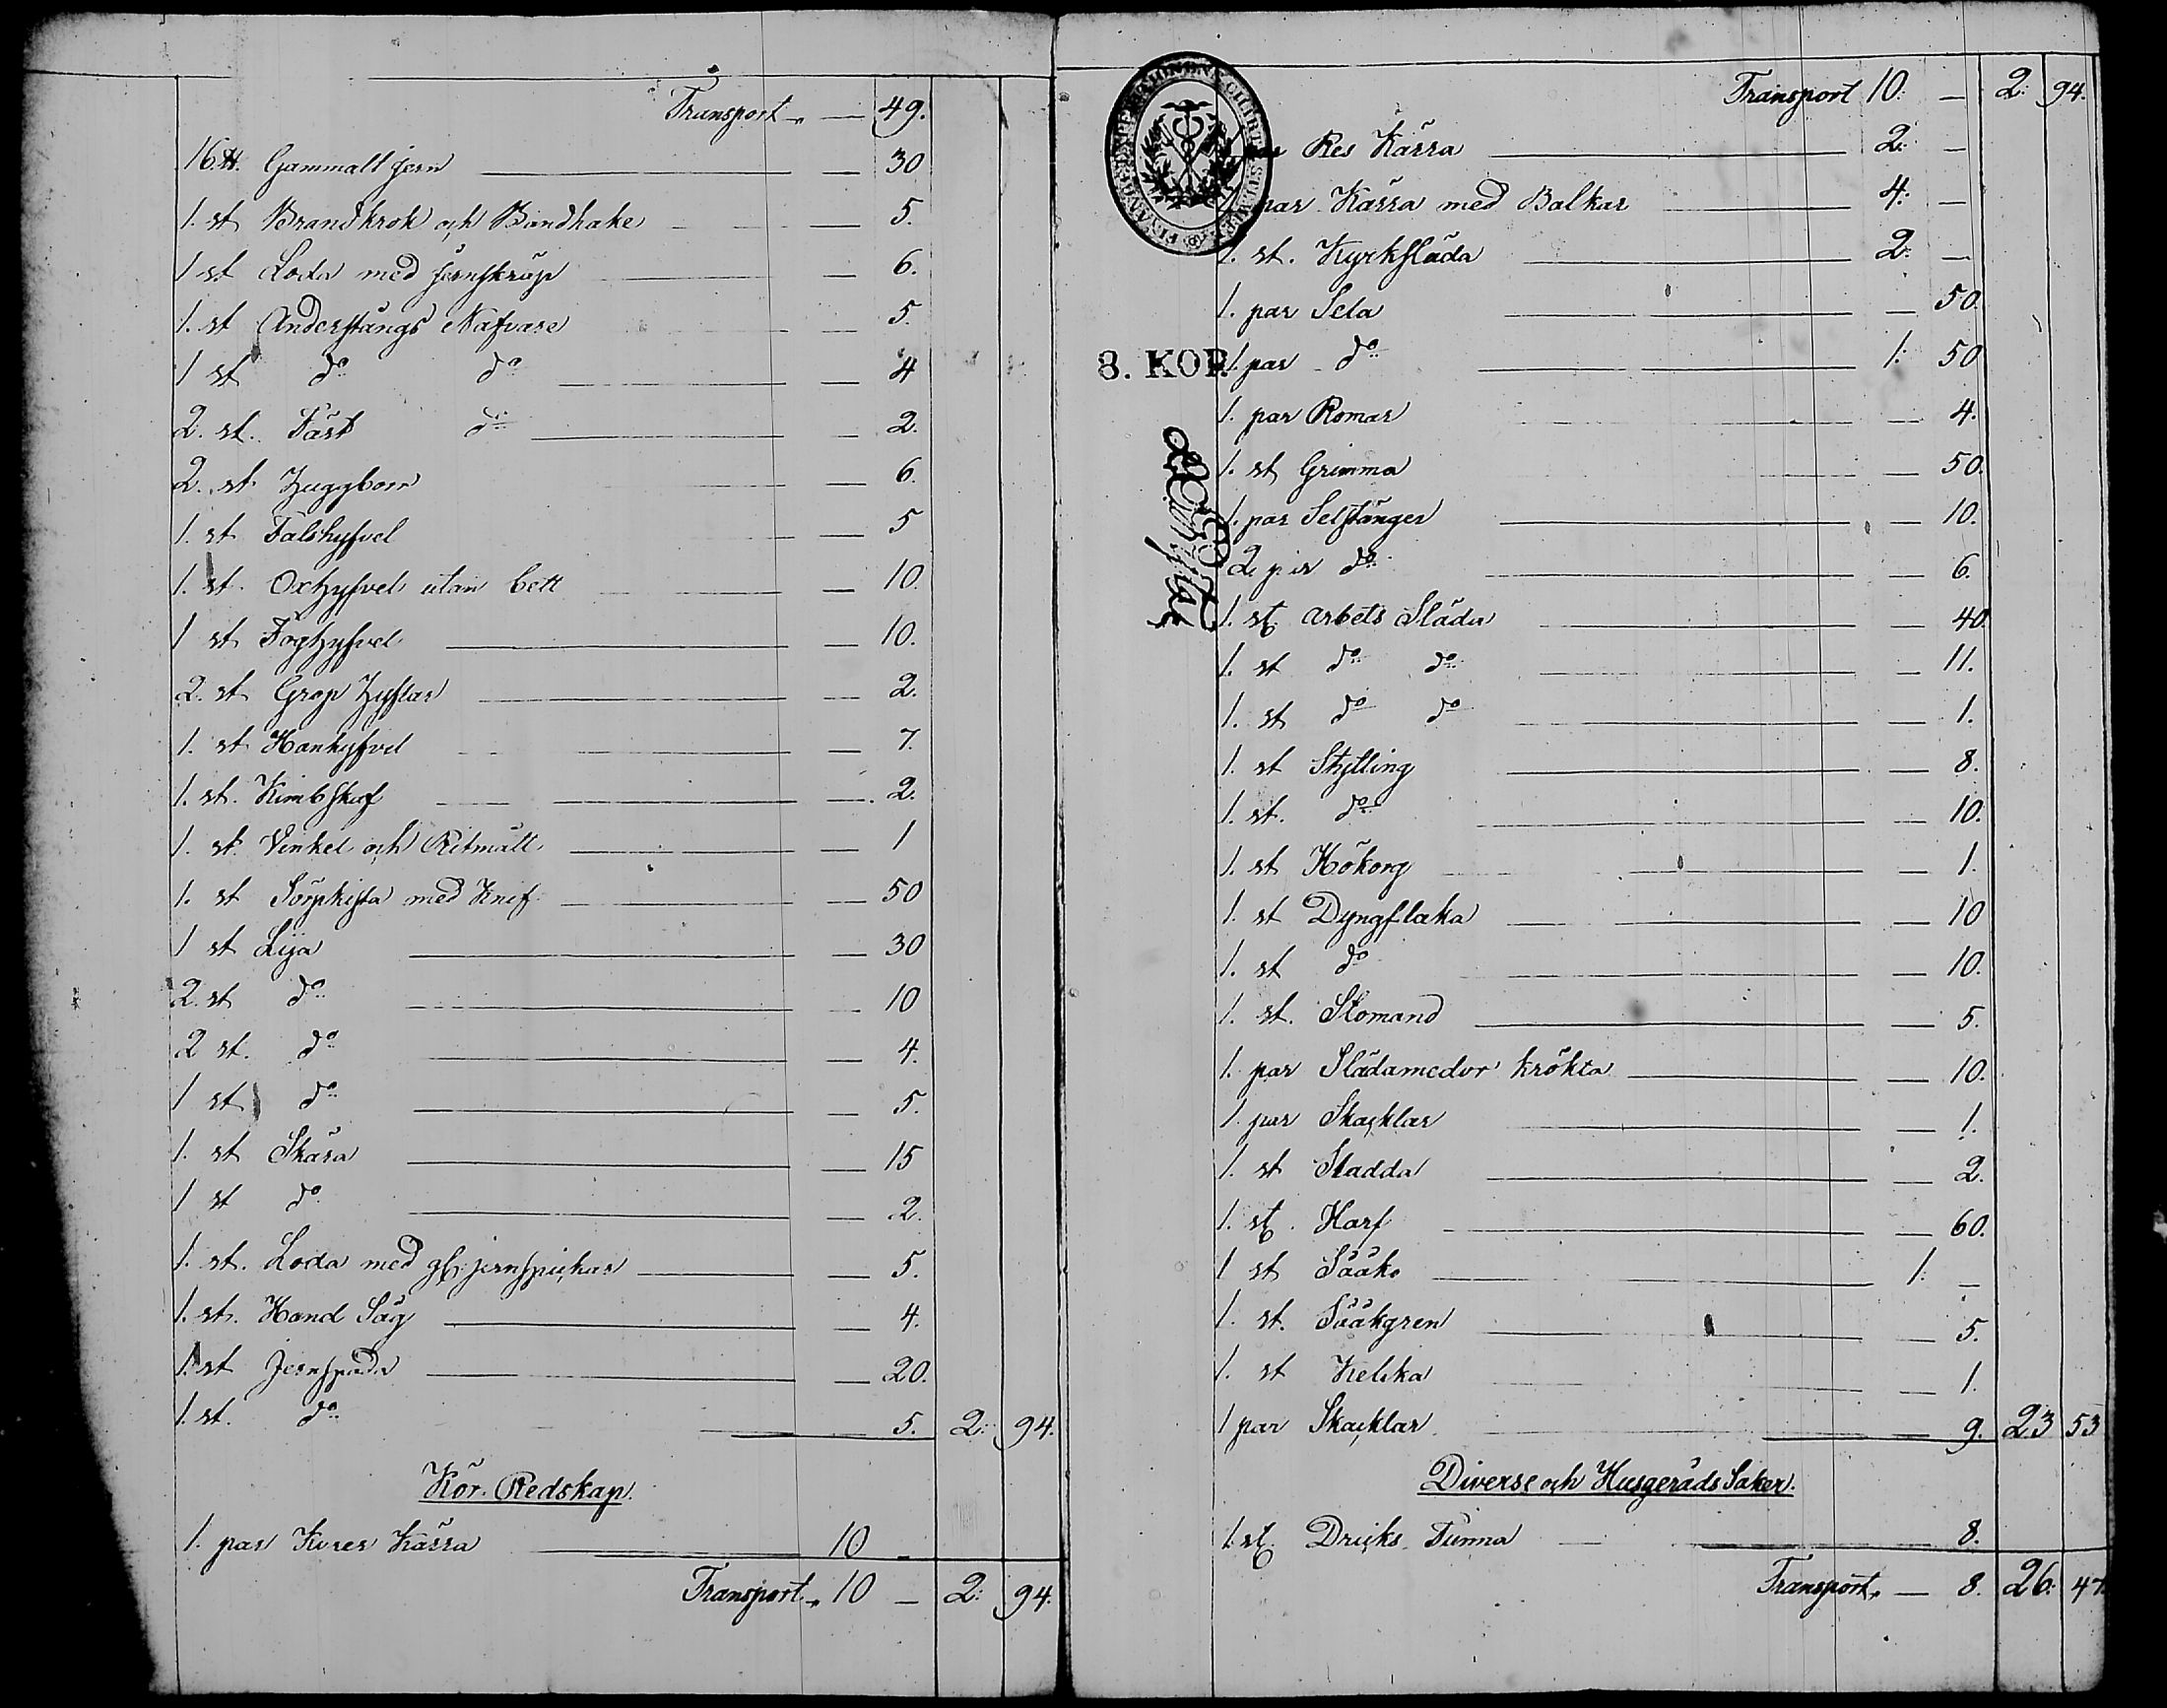 Transport — 49.
16 ℔. Gammalt jern — 30
1. st Brandkrok och Bandhake — 5.
1 st Loda med jernskräp — 6.
1. st Anderstångs Nafvare — 5.
1 st do do — 4
2. st. Fäst do — 2.
2. st. Huggborr — 6.
1. st Falshyfvel — 5
1. st. Oxhyfvel utan bett — 10.
1 st Foghyfvel — 10.
2. st Grop Hyflar — 2.
1. st Hankyfvel — 7.
1. st. Kimbskaf — 2.
1. st. Vinkel och Ritmått — 1
1. st Sörpkista med Knif — 50
1 st Lija — 30
2. st do — 10
2 st. do — 4.
1 st do — 5.
1. st Skära — 15
1 st do — 2.
1. st. Loda med gl: jernspickar — 5.
1. st. Hand Såg — 4.
1. st Jernspada — 20.
1. st. do — 5. 2: 94.
Kör-Redskap.
1. par Kärra 10 —
Transport 10 — 2: 94.
Transport 10: — 2: 94.
par Res Kärra 2: —
1 par Kärra med Balkar 4: —
1. st. Kyrksläda 2: —
1. par Sela — 50.
8. KOP.
1. par do 1: 50
1. par Romar — 4.
1. st Grimma — 50.
1. par Selstänger — 10.
2. par do — 6.
1. st. arbets Släda — 40
1. st do do — 11.
1. st do do — 1.
1. st Stytting — 8.
1. st. do — 10.
1. st Hökorg — 1.
1. st Dyngflaka — 10
1. st do — 10.
1. st. Slomand — 5.
1. par Slädamedor krökta — 10.
1. par Skacklar — 1.
1. st Sladda — 2.
1. st. Harf — 60.
1 st Sååko 1: —
1. st. Sååkgren — 5.
1. st Kelka — 1.
1 par Skacklar — 9. 23 53
Diverse och Husgeråds Saker.
1. st. Dricks Tunna — 8.
Transport — 8. 26: 47.